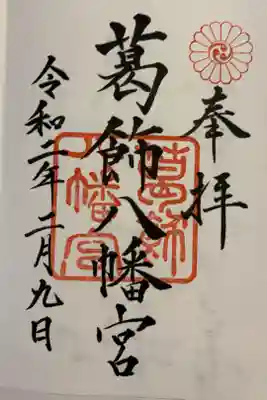 奉拝
葛飾八幡宮
葛飾
八幡宮
令和二年 二月九日